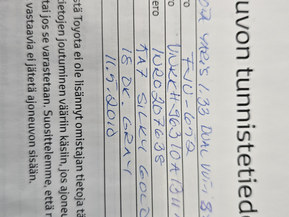 uvon tunnistetied
ota yaris 1.33 Dual VVTi
ro
ro
ero
1A7 SILKY GOLD
15 DK. GRAY
11.5.2010
stä Toyota ei ole lisännyt omistajan tietoja tä
tietojen joutuminen vääriin käsiin, jos ajoneu
tai jos se varastetaan. Suosittelemme, että
vastaavia ei jätetä ajoneuvon sisään.